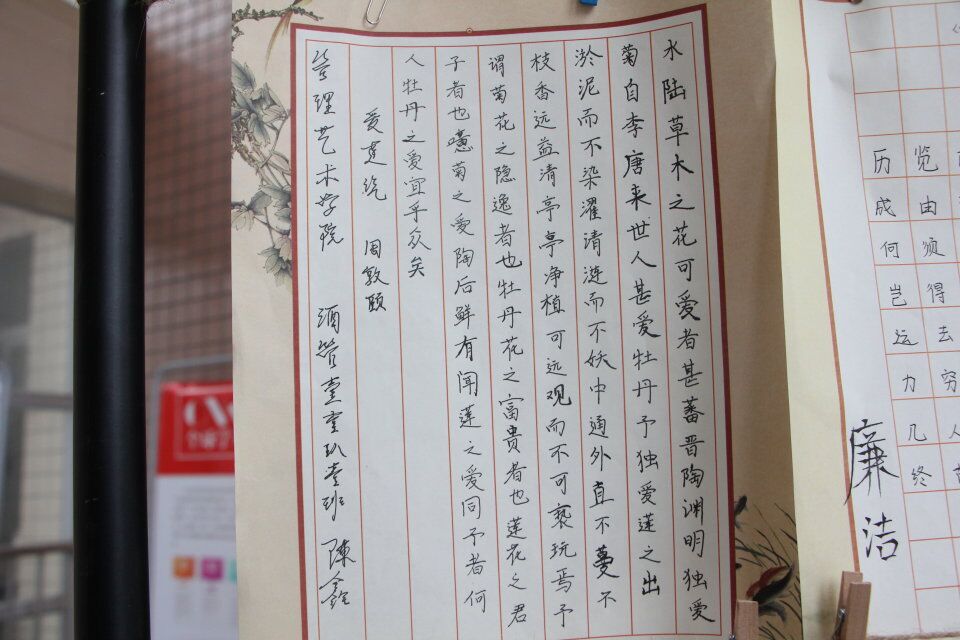 水陆草木之花可爱者甚蕃晋陶渊明独爱
菊自李唐来世人甚爱牡丹予独爱莲之出
淤泥而不染濯清涟而不妖中通外直不蔓不
枝香远益清亭亭净植可远观而不可亵玩焉予
谓菊花之隐逸者也牡丹花之富贵者也莲花之君
子者也噫菊之爱陶后鲜有闻莲之爱同予者何
人牡丹之爱宜乎众矣
爱莲说 周敦颐
管理艺术学院 酒管壹重玖壹班 陳鑫
览由须得去穷人
历成何岂运力几终
廉洁